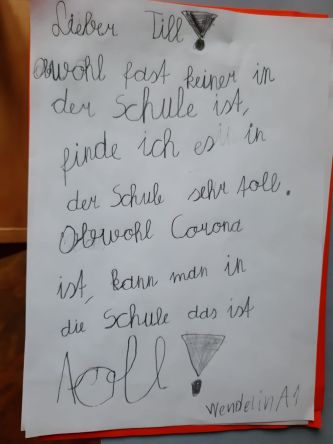 Lieber Till!
obwohl fast keiner in
der Schule ist,
finde ich es in
der Schule sehr toll.
Obwohl Corona
ist, kann man in
die Schule das ist
toll!
Wendelin A1